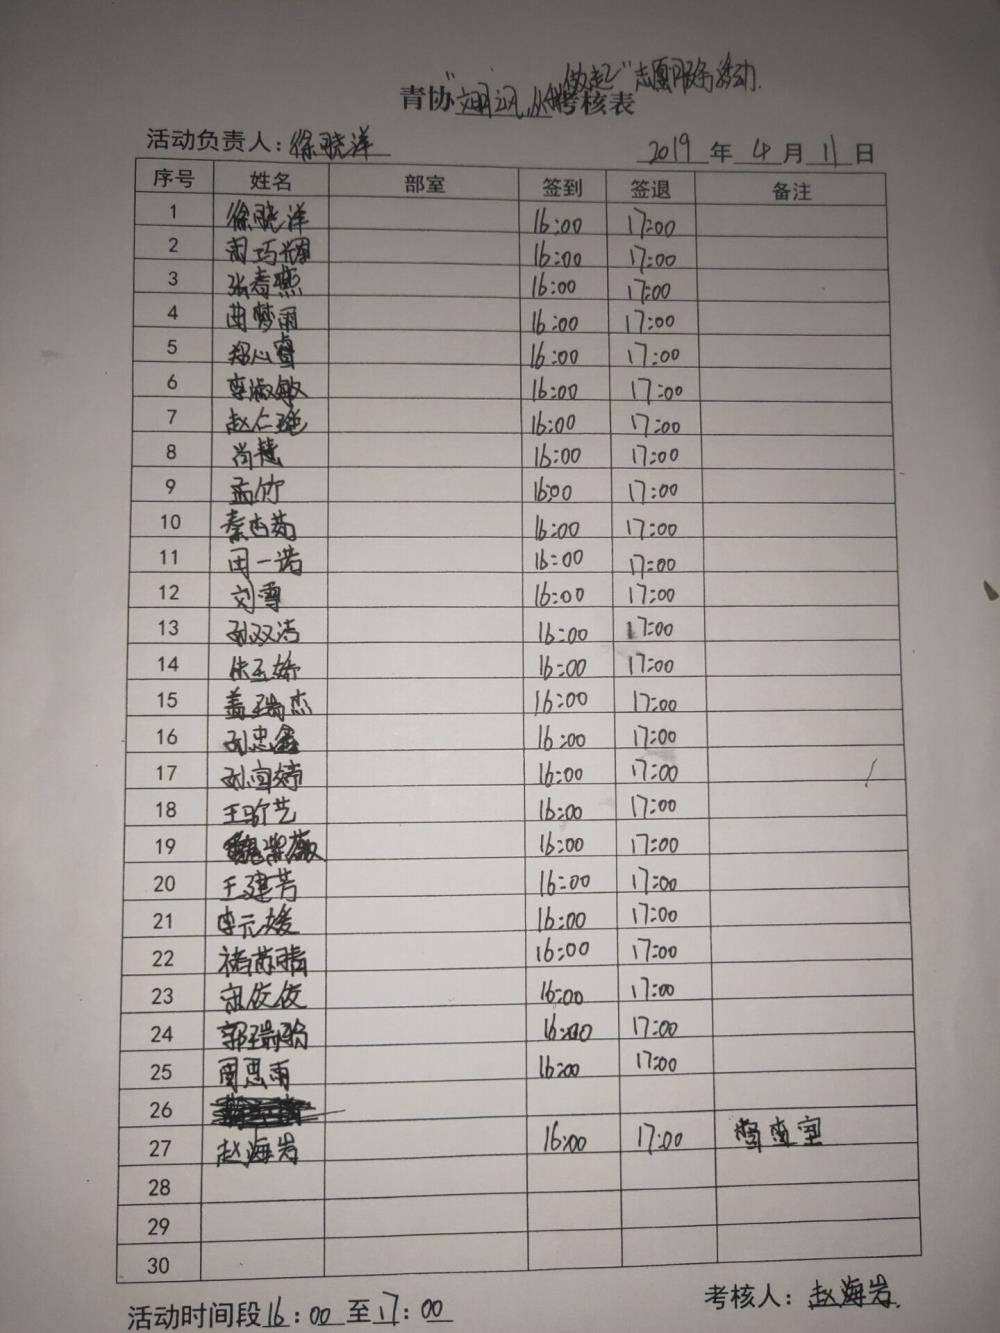 青协"文明之风,从我做起"志愿服务活动考核表
活动负责人:徐晓洋 2019年4月11日
序号 姓名 部室 签到 签退 备注
1 徐晓洋 16:00 17:00
2 周巧辉 16:00 17:00
3 张春燕 16:00 17:00
4 曲梦雨 16:00 17:00
5 郑心睿 16:00 17:00
6 李淑敏 16:00 17:00
7 赵仁艳 16:00 17:00
8 尚慧 16:00 17:00
9 孟竹 16:00 17:00
10 秦杏菊 16:00 17:00
11 田一诺 16:00 17:00
12 刘雪 16:00 17:00
13 孙双洁 16:00 17:00
14 朱玉娇 16:00 17:00
15 盖瑞杰 16:00 17:00
16 孙忠鑫 16:00 17:00
17 孙宜婷 16:00 17:00
18 王昕艺 16:00 17:00
19 魏紫薇 16:00 17:00
20 王建芳 16:00 17:00
21 李元媛 16:00 17:00
22 16:00 17:00
23 宋佼佼 16:00 17:00
24 16:00 17:00
25 周思雨 16:00 17:00
26
27 赵海岩 16:00 17:00 督查室
28
29
30
活动时间段16:00至17:00 考核人:赵海岩